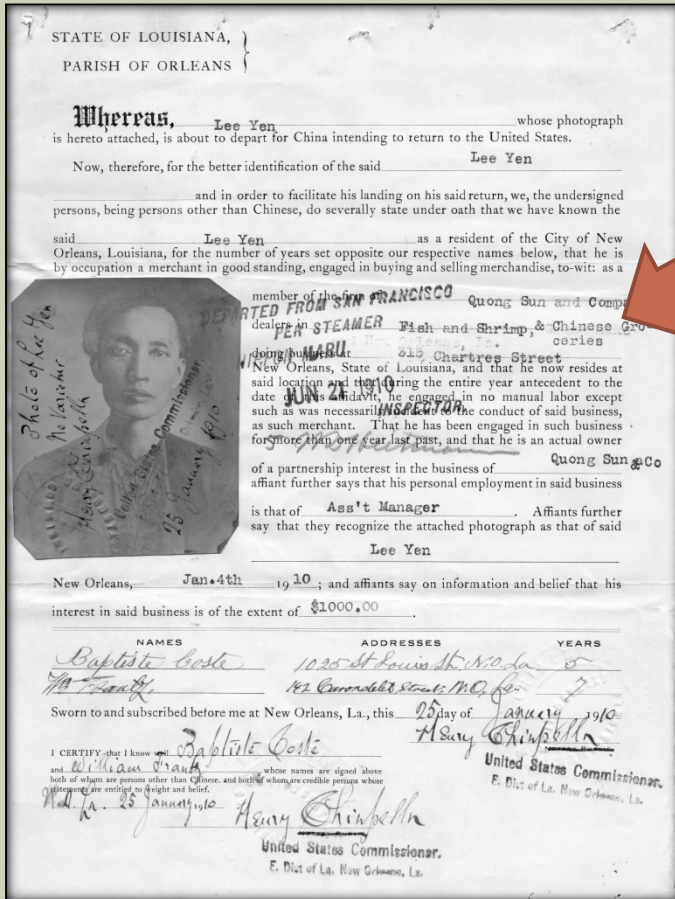 STATE OF LOUISIANA,
PARISH OF ORLEANS
Whereas, Lee Yen whose photograph
is hereto attached, is about to depart for China intending to return to the United States.
Now, therefore, for the better identification of the said Lee Yen
and in order to facilitate his landing on his said return, we, the undersigned
persons, being persons other than Chinese, do severally state under oath that we have known the
said Lee Yen as a resident of the City of New
Orleans, Louisiana, for the number of years set opposite our respective names below, that he is
by occupation a merchant in good standing, engaged in buying and selling merchandise, to-wit: as a
member of the firm of Quong Sun and Compa
dealers in Fish and Shrimp, & Chinese Gro
ceries
doing business at 315 Chartres Street
New Orleans, State of Louisiana, and that he now resides at
said location and that during the entire year antecedent to the
date of this affidavit, he engaged in no manual labor except
such as was necessarily incident to the conduct of said business,
as such merchant. That he has been engaged in such business
for more than one year last past, and that he is an actual owner
of a partnership interest in the business of Quong Sun & Co
affiant further says that his personal employment in said business
is that of Ass't Manager. Affiants further
say that they recognize the attached photograph as that of said
Lee Yen
DEPARTED FROM SAN FRANCISCO
PER STEAMER
NIPPON MARU
JUN 21 1910
INSPECTOR.
Photo of Lee Yen
Ne Varietur
Henry Chinpelln
United States Commissioner.
25 January 1910
New Orleans, Jan.4th 1910; and affiants say on information and belief that his
interest in said business is of the extent of $1000.00.
NAMES ADDRESSES YEARS
Baptiste Coste 1025 St Louis St. N.O. La 5
Wm Frantz 142 Carondelet Street, N.O, La 7
Sworn to and subscribed before me at New Orleans, La., this 25 day of January 1910
Henry Chinpelln
United States Commissioner.
E. Dist of La. New Orleans, La.
I CERTIFY that I know well Baptiste Coste
and William Frantz whose names are signed above
both of whom are persons other than Chinese, and both of whom are credible persons whose
statements are entitled to weight and belief.
N.O. La. 25 January 1910 Henry Chinpelln
United States Commissioner.
E. Dist of La. New Orleans, La.